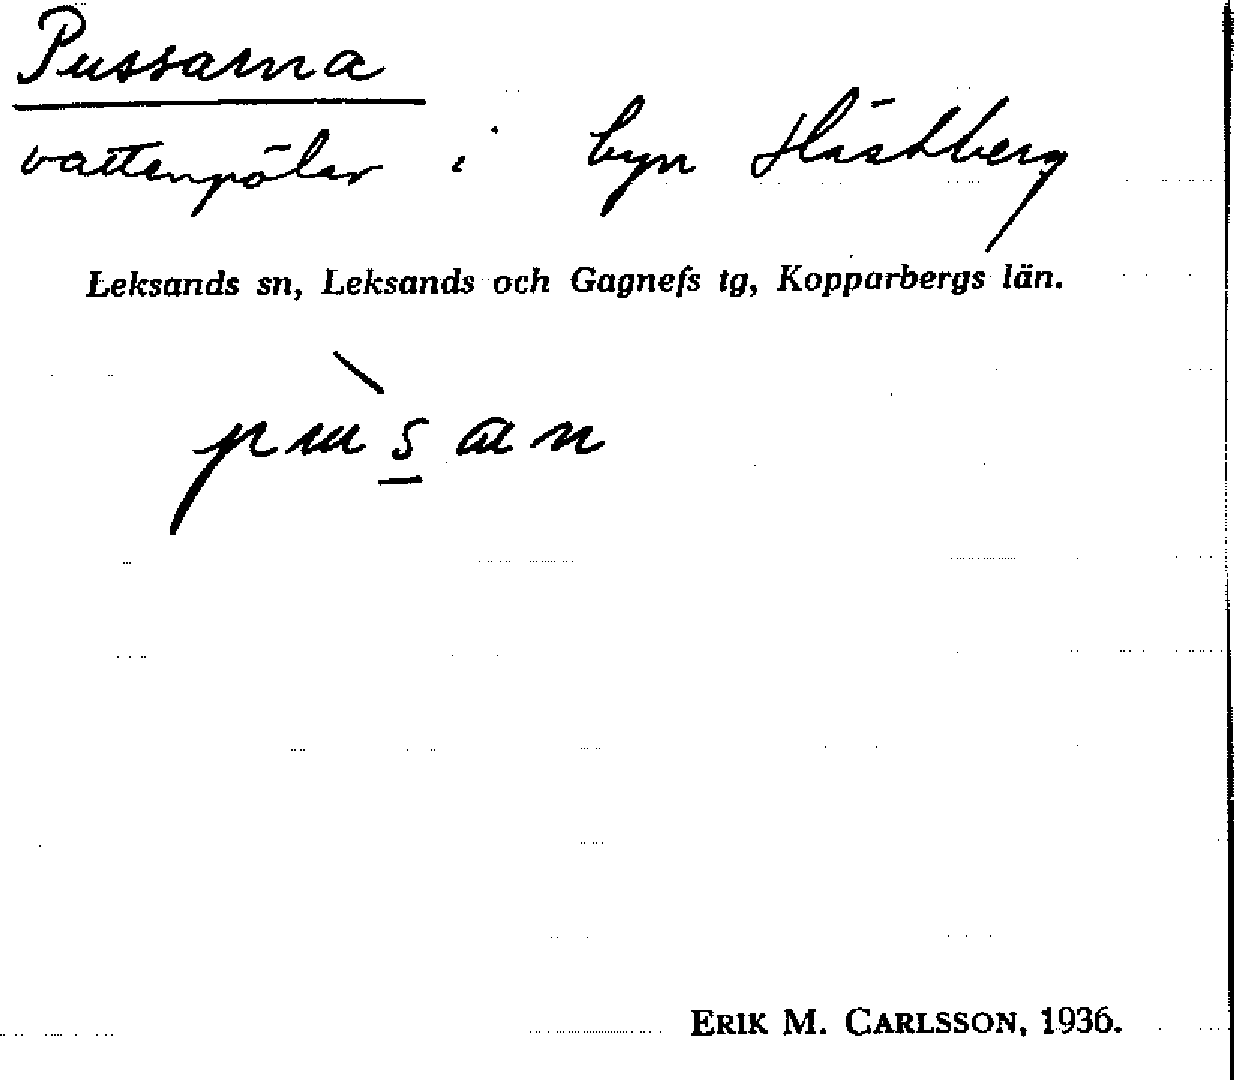 Pussarna
vattenpölar i byn Hästberg
Leksands sn, Leksands och Gagnefs tg, Kopparbergs län.
ERIK M. CARLSSON, 1936.